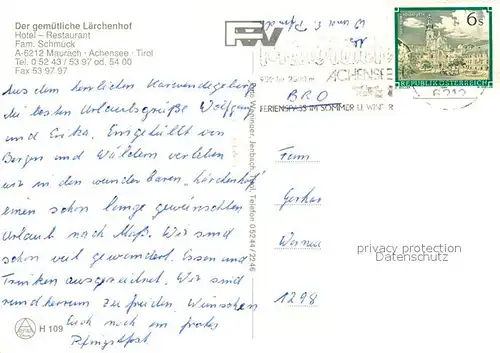 Der gemütliche Lärchenhof
Hotel – Restaurant
Fam. Schmuck
A-6212 Maurach · Achensee · Tirol
Tel. 0 52 43 / 53 97 od. 54 00
Fax 53 97 97
Aus dem herrlichen Karwendelgebirge
die besten Urlaubsgrüße Wolfgang
und Erika. Eingehüllt von
Bergen und Wäldern verleben
wir in den wunderbaren „Lärchenhof“
einen schon lange gewünschten
Urlaub nach Maß. Wir sind
schon viel gewandert. Essen und
Trinken ausgezeichnet. Wir sind
rundherum zufrieden. Wünschen
Euch noch ein frohes
Pfingstfest
H 109
Jenbach, Tirol, Telefon 05244/2246
ACHENSEE
FERIENSPASS IM SOMMER U. WINTER
6212
6 S
REPUBLIK ÖSTERREICH
BRD
Fam
Werner
1298
privacy protection
Datenschutz